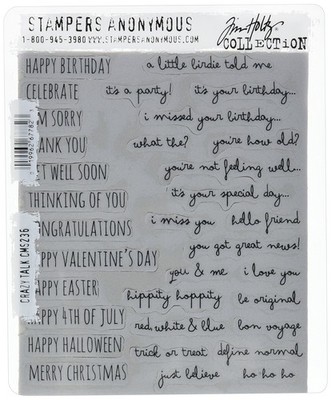 STAMPERS ANONYMOUS
1-800-945-3980 WWW.STAMPERSANONYMOUS.COM
Tim Holtz
COLLECTION
HAPPY BIRTHDAY a little birdie told me
CELEBRATE it's a party! it's your birthday...
I'M SORRY i missed your birthday...
THANK YOU what the? you're how old?
GET WELL SOON you're not feeling well...
THINKING OF YOU it's your special day...
CONGRATULATIONS i miss you hello friend
you got great news!
HAPPY VALENTINE'S DAY you & me i love you
HAPPY EASTER hippity hoppity be original
HAPPY 4TH OF JULY red, white & blue bon voyage
HAPPY HALLOWEEN trick or treat define normal
MERRY CHRISTMAS just believe ho ho ho
CRAZY TALK CMS236